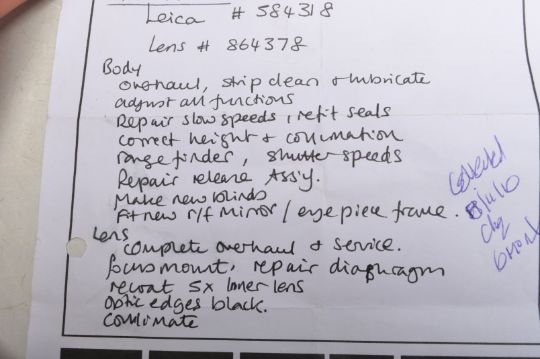 Leica # 584318
Lens # 864378
Body
overhaul, strip clean + lubricate
adjust all functions
Repair slow speeds, refit seals
correct height + collimation
rangefinder, shutter speeds
Repair release Ass'y.
Make new blinds
Fit new r/f mirror / eyepiece frame.
Lens
Complete overhaul + service.
focus mount, repair diaphragm
recoat 5x Inner lens
optic edges black.
Collimate
Collected